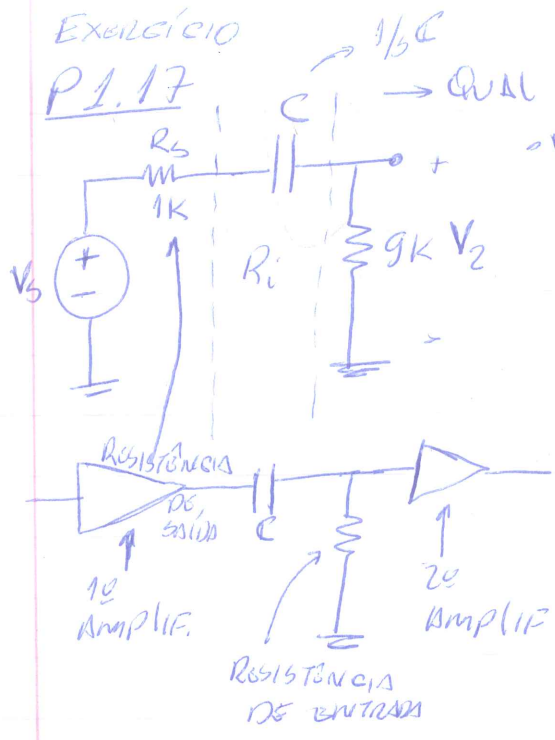 EXERCÍCIO
P 1.17
1/sC
→ QUAL
C
Rs
1K
+
Vs
+
-
Ri
9K V2
-
RESISTÊNCIA
DE
SAÍDA
C
1º
AMPLIF.
2º
AMPLIF
RESISTÊNCIA
DE ENTRADA